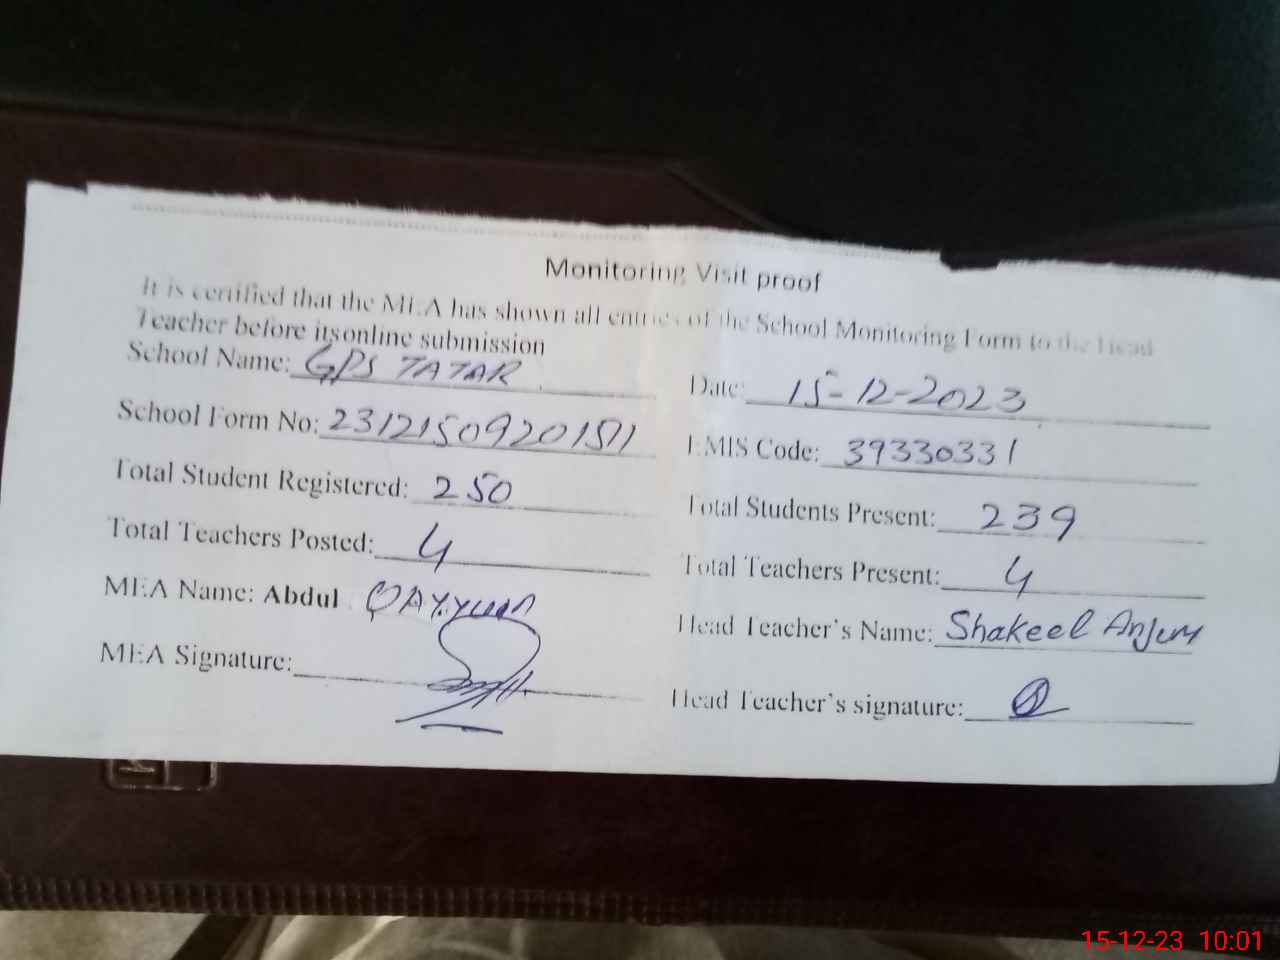 Monitoring Visit proof
It is certified that the MEA has shown all entries of the School Monitoring Form to the Head
Teacher before itsonline submission
School Name: GPS TATAR
Date: 15-12-2023
School Form No: 23121509201511
EMIS Code: 39330331
Total Student Registered: 250
Total Students Present: 239
Total Teachers Posted: 4
Total Teachers Present: 4
MEA Name: Abdul QAYYUM
Head Teacher's Name: Shakeel Anjum
MEA Signature:
Head Teacher's signature:
15-12-23 10:01